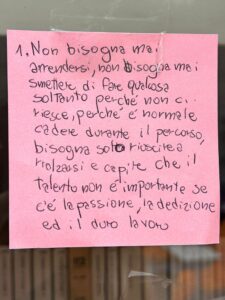 1. Non bisogna mai
arrendersi, non bisogna mai
smettere di fare qualcosa
soltanto perché non ci
riesce, perché é normale
cadere durante il percorso,
bisogna solo riuscire a
rialzarsi e capire che il
talento non é importante se
c'é la passione, la dedizione
ed il duro lavoro